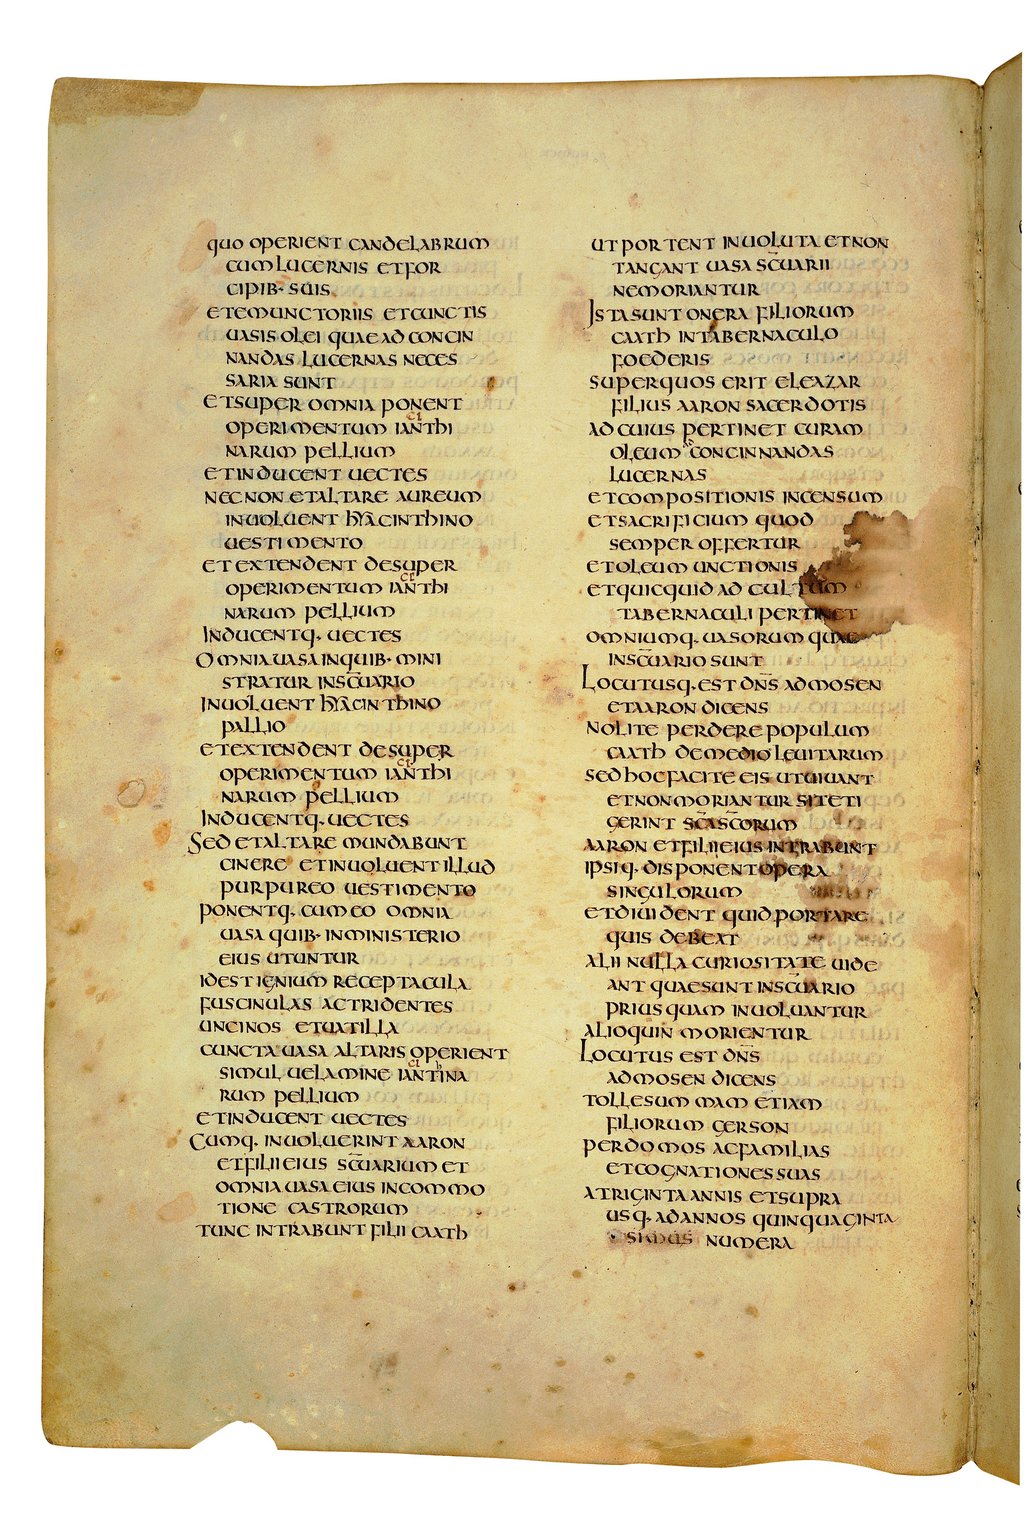 quo operient candelabrum
cum lucernis et for
cipib· suis
et emunctoriis et cunctis
uasis olei quae ad concin
nandas lucernas neces
saria sunt
et super omnia ponent
operimentum ianthi
narum pellium
et inducent uectes
nec non et altare aureum
inuoluent hyacinthino
uestimento
et extendent desuper
operimentum ianthi
narum pellium
Inducentq· uectes
Omnia uasa in quib· mini
stratur in sc̄uario
Inuoluent hyacinthino
pallio
et extendent desuper
operimentum ianthi
narum pellium
Inducentq· uectes
Sed et altare mundabunt
cinere et inuoluent illud
purpureo uestimento
ponentq· cum eo omnia
uasa quib· in ministerio
eius utuntur
id est ignium receptacula
fuscinulas ac tridentes
uncinos et uatilla
cuncta uasa altaris operient
simul uelamine iantina
rum pellium
et inducent uectes
Cumq· inuoluerint aaron
et filii eius sc̄uarium et
omnia uasa eius in commo
tione castrorum
tunc intrabunt filii caath
ut portent inuoluta et non
tangant uasa sc̄uarii
ne moriantur
Ista sunt onera filiorum
caath in tabernaculo
foederis
super quos erit eleazar
filius aaron sacerdotis
ad cuius pertinet curam
oleum concinnandas
lucernas
et compositionis incensum
et sacrificium quod
semper offertur
et oleum unctionis
et quicquid ad cultum
tabernaculi pertinet
omniumq· uasorum quae
in sc̄uario sunt
Locutusq· est dn̄s ad mosen
et aaron dicens
nolite perdere populum
caath de medio leuitarum
sed hoc facite eis ut uiuant
et non moriantur si teti
gerint sc̄a sc̄orum
aaron et filii eius intrabunt
ipsiq· disponent opera
singulorum
et diuident quid portare
quis debeat
alii nulla curiositate uide
ant quae sunt in sc̄uario
prius quam inuoluantur
alioquin morientur
Locutus est dn̄s
ad mosen dicens
tolle summam etiam
filiorum gerson
per domos ac familias
et cognationes suas
a triginta annis et supra
usq· ad annos quinquaginta
numera